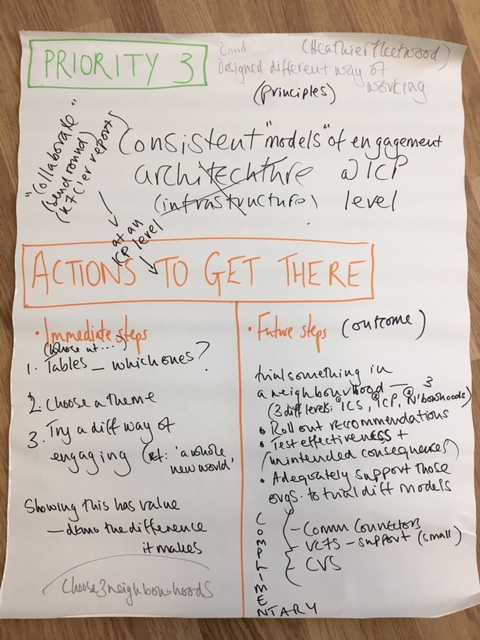 PRIORITY 3
(Healthier fleetwood)
Designed different way of
working
(principles)
"Collaborate"
Consistent "models" of engagement
architechture @ ICP
(infrastructure) level
at an
ICP level
ACTIONS TO GET THERE
• Immediate steps
1. Tables – which ones?
2. Choose a theme
3. Try a diff way of
engaging (ref: 'a whole
new world'
Showing this has value
– demo the difference
it makes
Choose 3 neighbourhoods
• Future steps (outcome)
trial something in
a neighbourhood – 3
(3 diff levels: ICS, ICP, N'bourhoods)
• Roll out recommendations
• Test effectiveness +
(unintended consequences)
• Adequately support those
orgs. to trial diff models
COMPLIMENTARY
– Comm Connectors
– VCFS – support (small)
– CVS